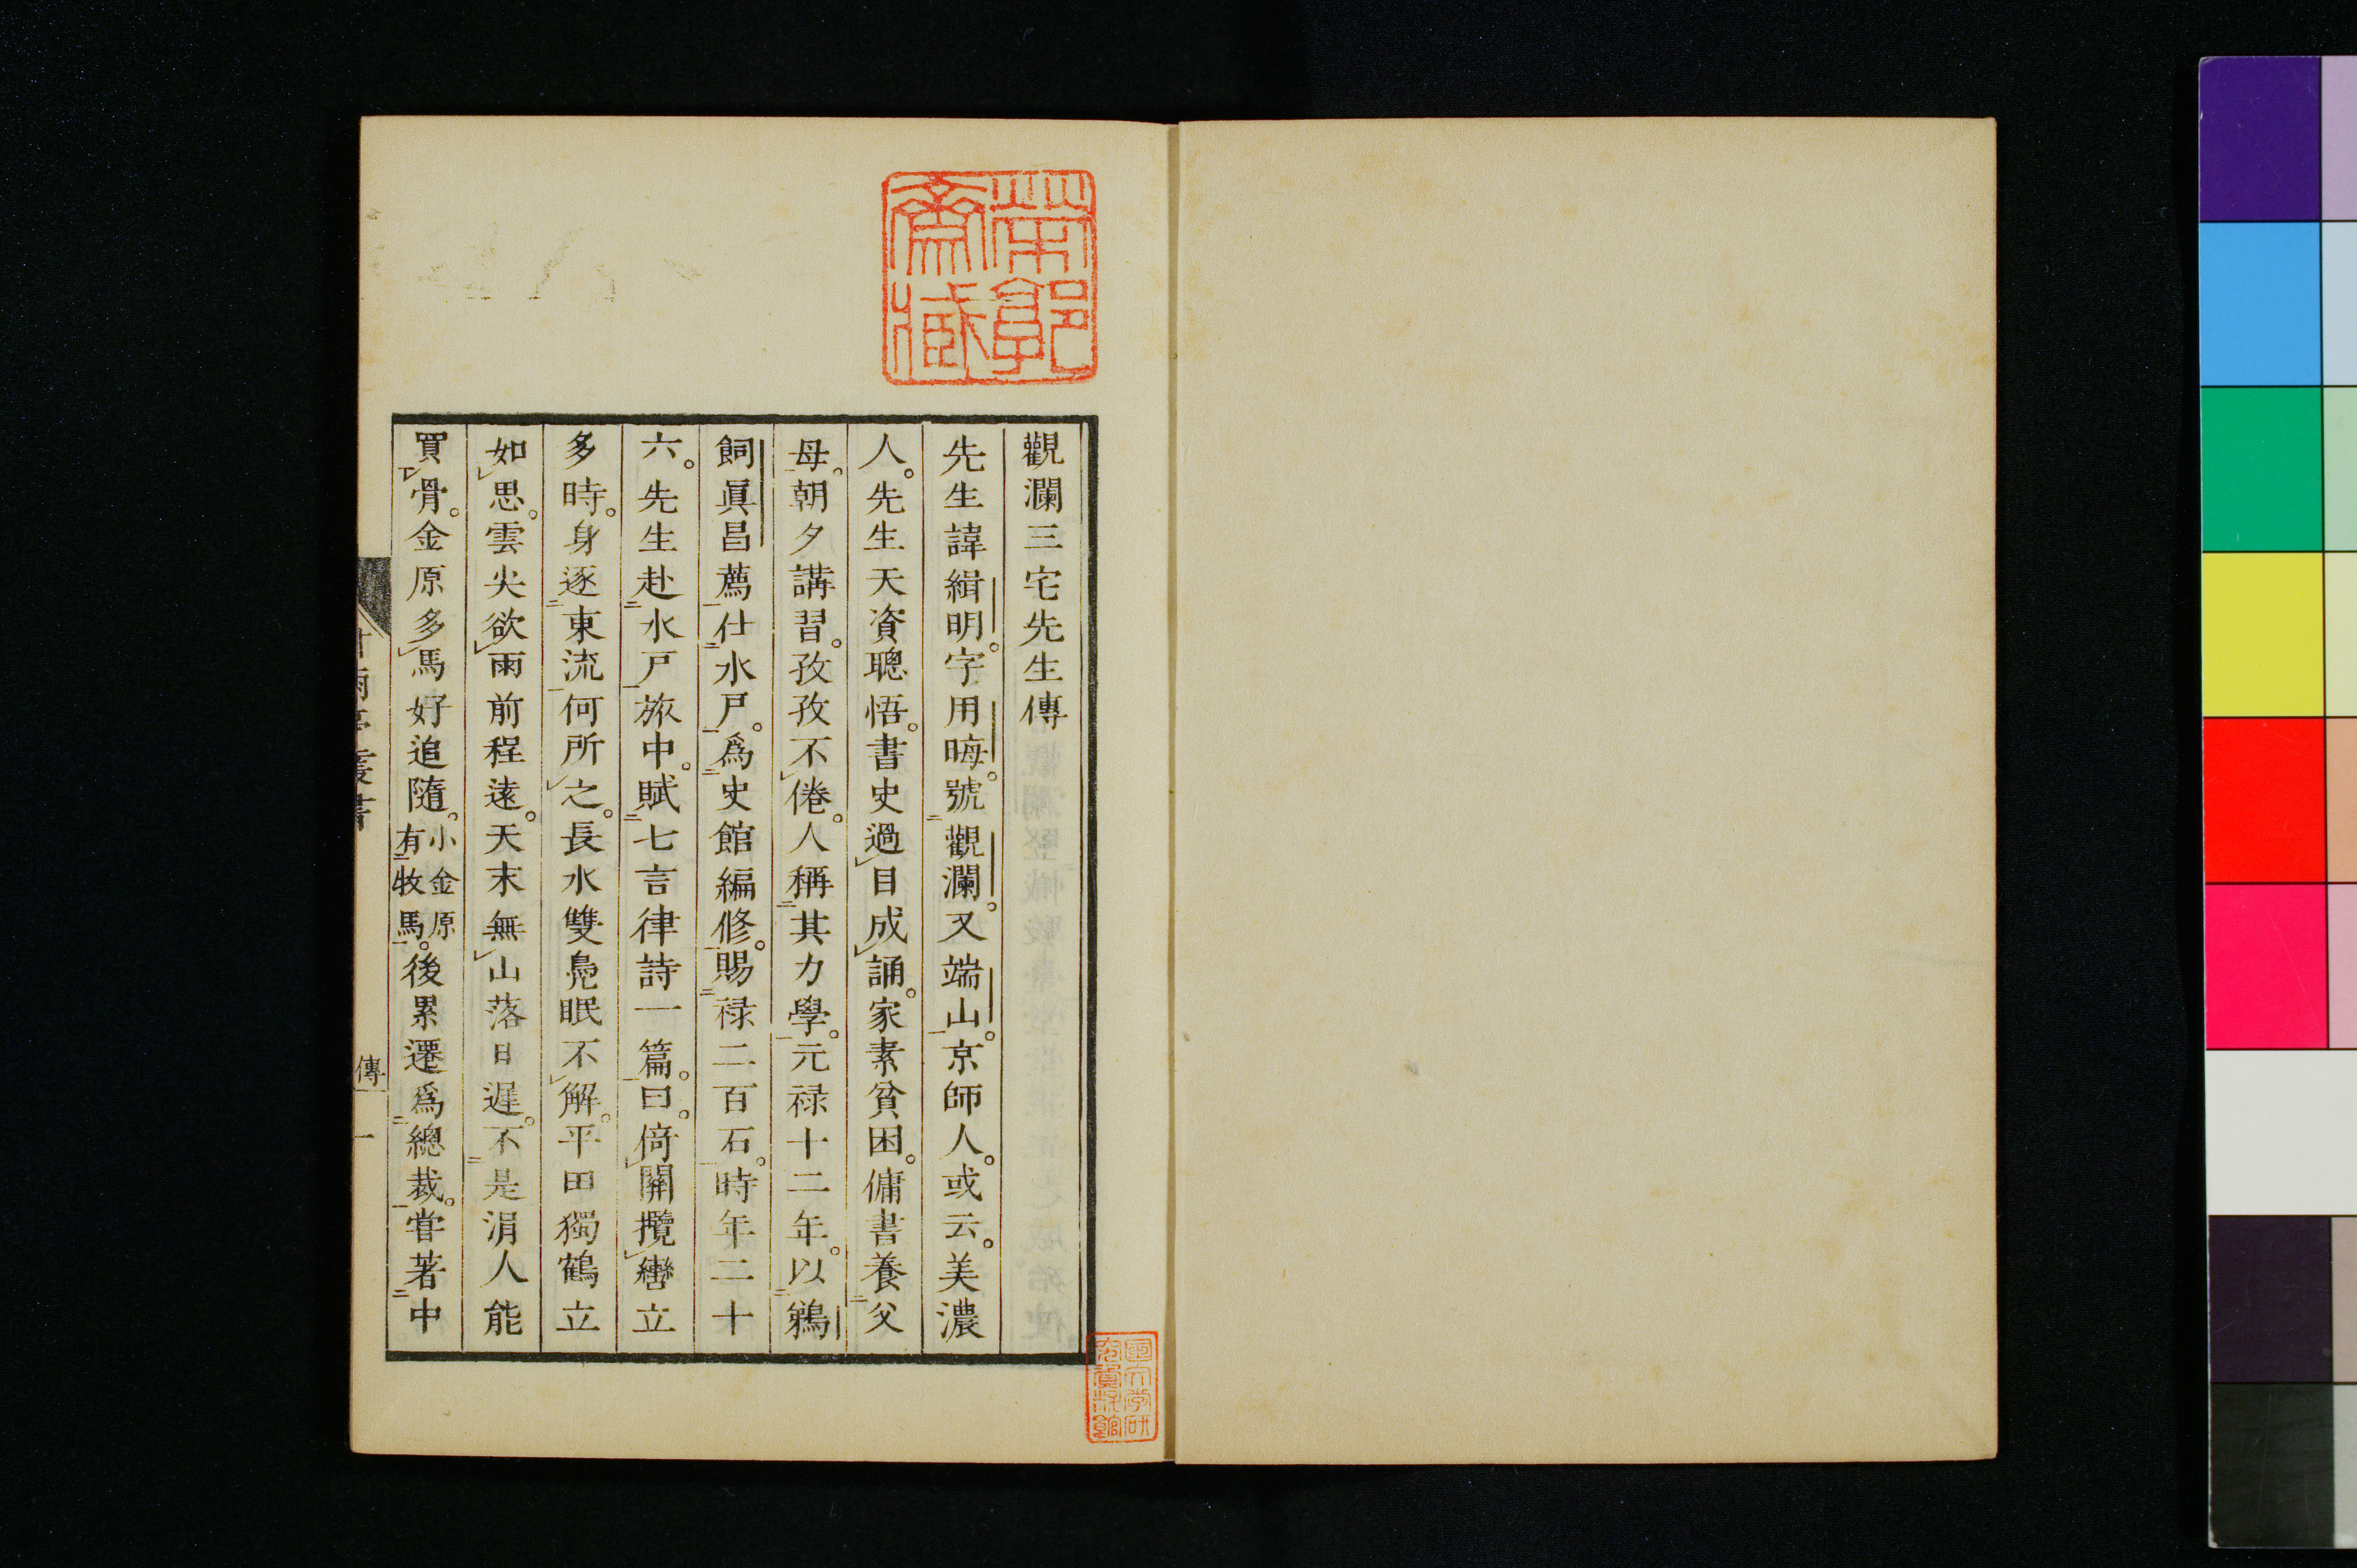 觀瀾三宅先生傳
先生諱緝明。字用晦。號觀瀾。又端山。京師人。或云。美濃
人。先生天資聰悟。書史過目成誦。家素貧困。傭書養父
母。朝夕講習。孜孜不倦。人稱其力學。元禄十二年。以鵜
飼眞昌薦仕水戸。爲史館編修。賜禄二百石。時年二十
六。先生赴水戸旅中。賦七言律詩一篇。曰。倚關攬轡立
多時。身逐東流何所之。長水雙鳧眠不解。平田獨鶴立
如思。雲尖欲雨前程遠。天末無山落日遲。不是涓人能
買骨。金原多馬好追隨。小金原有牧馬。後累遷爲總裁。甞著中
甘雨亭叢書
傳
一
齋藏
國文學研
究資料館